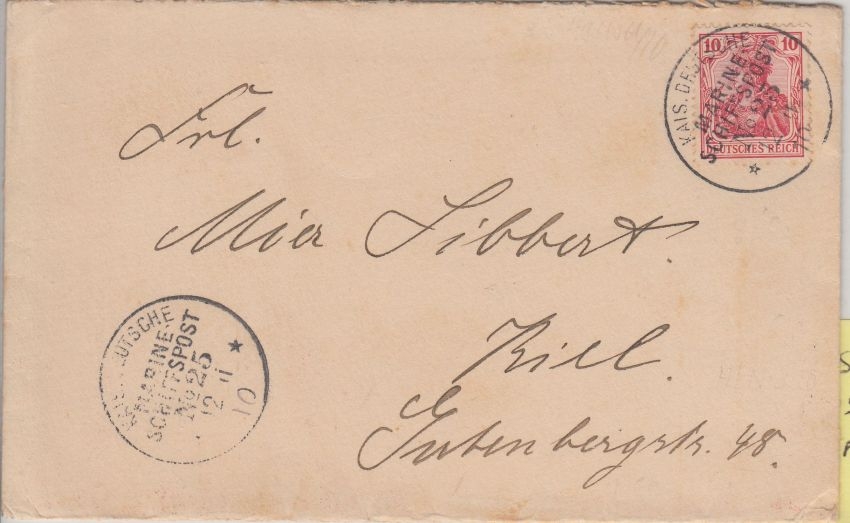 10 10
DEUTSCHES REICH
KAIS. DEUTSCHE
MARINE-
SCHIFFSPOST
No 25
Frl.
Mier Sibbert.
Kiel.
Gutenbergstr. 48.
DEUTSCHE
MARINE-
SCHIFFSPOST
No 25
12 11
10